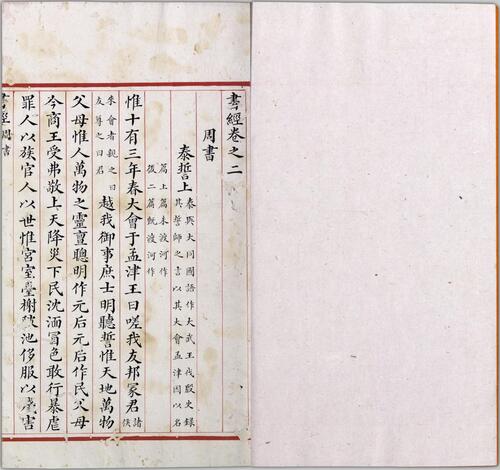 書經卷之二
周書
泰誓上
泰與大同國語作大武王伐殷史錄
其誓師之言以其大會孟津因以名
篇上篇未渡河作
後二篇既渡河作
惟十有三年春大會于孟津王曰嗟我友邦冢君
諸
侯
來會者親之曰
友尊之曰君
越我御事庶士明聽誓惟天地萬物
父母惟人萬物之靈亶聰明作元后元后作民父母
今商王受弗敬上天降災下民沈湎冒色敢行暴虐
罪人以族官人以世惟宮室臺榭陂池侈服以殘害
書經 周書